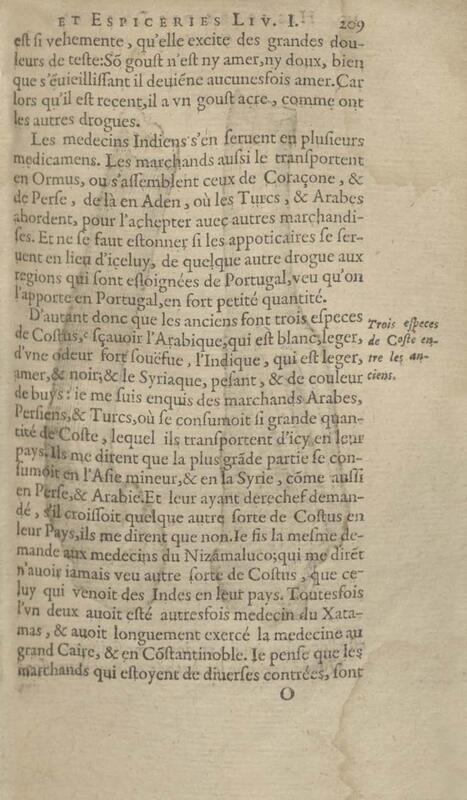 ET ESPICERIES LIV. I. 209
eſt ſi vehemente, qu'elle excite des grandes dou-
leurs de teſte: Sõ gouſt n'eſt ny amer, ny doux, bien
que s'éuieilliſſant il deuiéne aucunesfois amer. Car
lors qu'il eſt recent, il a vn gouſt acre, comme ont
les autres drogues.
Les medecins Indiens s'en ſeruent en pluſieurs
medicamens. Les marchands auſsi le tranſportent
en Ormus, ou s'aſſemblent ceux de Coraçone, &
de Perſe, de là en Aden, où les Turcs, & Arabes
abordent, pour l'achepter auec autres marchandi-
ſes. Et ne ſe faut eſtonner ſi les appoticaires ſe ſer-
uent en lieu d'iceluy, de quelque autre drogue aux
regions qui ſont eſloignées de Portugal, veu qu'on
l'apporte en Portugal, en fort petite quantité.
D'autant donc que les anciens font trois eſpeces
de Coſtus, ᶜ ſçauoir l'Arabique, qui eſt blanc, leger,
d'vne odeur fort ſouëfue, l'Indique, qui eſt leger,
amer, & noir; & le Syriaque, peſant, & de couleur
de buys: ie me ſuis enquis des marchands Arabes,
Perſiens, & Turcs, où ſe conſumoit ſi grande quan-
tité de Coſte, lequel ils tranſportent d'icy en leur
pays. Ils me dirent que la plus grãde partie ſe con-
ſumoit en l'Aſie mineur, & en la Syrie, cõme auſſi
en Perſe, & Arabie. Et leur ayant derechef deman-
dé, s'il croiſſoit quelque autre ſorte de Coſtus en
leur Pays, ils me dirent que non. Ie fis la meſme de-
mande aux medecins du Nizamaluco; qui me dirẽt
n'auoir iamais veu autre ſorte de Coſtus, que ce-
luy qui venoit des Indes en leur pays. Toutesfois
l'vn deux auoit eſté autresfois medecin du Xata-
mas, & auoit longuement exercé la medecine au
grand Caire, & en Cõſtantinoble. Ie penſe que les
marchands qui eſtoyent de diuerſes contrées, ſont
O
Trois eſpeces
de Coſte en-
tre les an-
ciens.